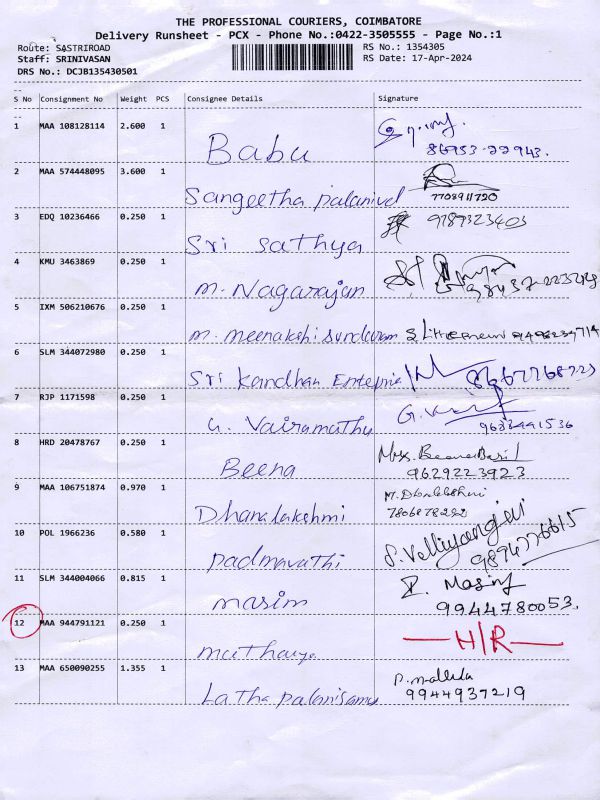 THE PROFESSIONAL COURIERS, COIMBATORE
Delivery Runsheet - PCX - Phone No.:0422-3505555 - Page No.:1
Route: SASTRIROAD
Staff: SRINIVASAN
DRS No.: DCJB135430501
RS No.: 1354305
RS Date: 17-Apr-2024
S No Consignment No Weight PCS Consignee Details Signature
1 MAA 108128114 2.600 1 Babu
2 MAA 574448095 3.600 1 Sangeetha palanivel 7708911720
3 EDQ 10236466 0.250 1 Sri sathya 9789323403
4 KMU 3463869 0.250 1 m. Nagarajan
5 IXM 506210676 0.250 1 m. meenakshi sundaram
6 SLM 344072980 0.250 1 Sri Kandhan
7 RJP 1171598 0.250 1 G. Vairamuthu G.
8 HRD 20478767 0.250 1 Beena Mrs. Beena Basil 9629223923
9 MAA 106751874 0.970 1 Dhanalakshmi
10 POL 1966236 0.580 1 padmavathi
11 SLM 344004066 0.815 1 masim 9944780053.
12 MAA 944791121 0.250 1 H/R
13 MAA 650090255 1.355 1 Latha palanisamy 9944937219